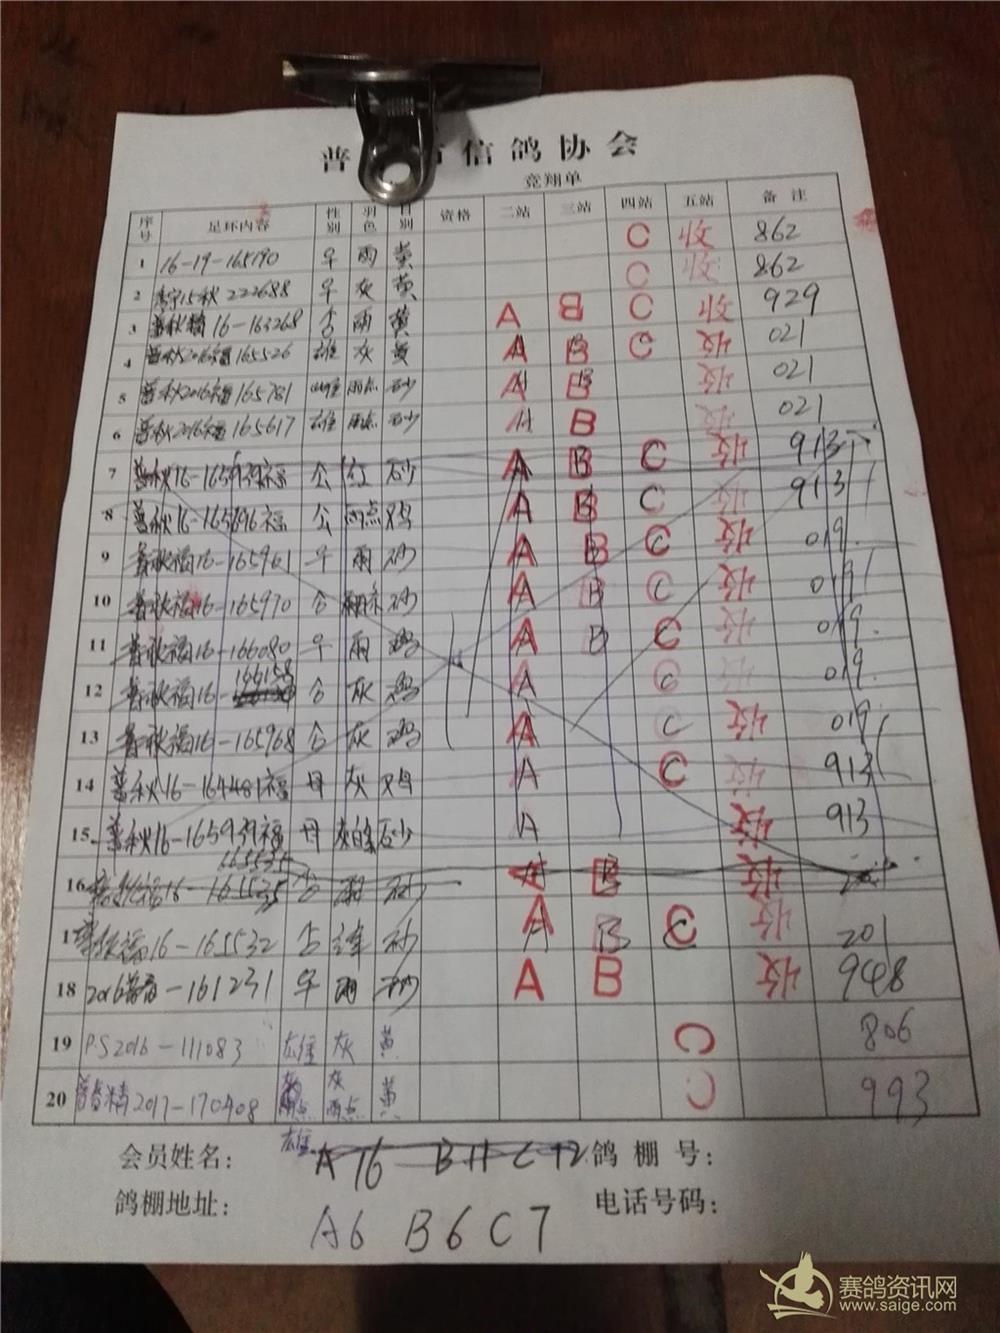 普 市信鸽协会
竞翔单
序号 足环内容 性别 羽色 目别 资格 二站 三站 四站 五站 备注
1 16-19-165190 早 雨 黄 C 收 862
2 15秋 222688 早 灰 黄 C 收 862
3 普秋精 16-163268 雨 黄 A B C 929
4 普秋2016福 165526 雄 灰 黄 A B C 收 021
5 普秋2016福 165781 雄 雨点 砂 A B 收 021
6 普秋2016福 165617 雄 雨点 砂 A B 收 021
7 普秋16-165939福 公 红 砂 A B C 收 913
8 普秋16-165896福 公 雨点 鸡 A B C 收 913
9 普秋福16-165961 早 雨 砂 A B C 收 019
10 普秋福16-165970 砂 A B C 收 019
11 普秋福16-166080 早 雨 鸡 A B C 收 019
12 普秋福16-166158 灰 鸡 A C 收 019
13 普秋福16-165968 灰 鸡 A C 收 019
14 普秋16-164481福 母 灰 鸡 A C 收 913
15 普秋16-165939福 母 灰白条 砂 A 收 913
165535
16 福16-165535 雨 砂 A B 收
17 普秋福16-165532 绛 砂 A B C 收 201
18 2016普春-161231 早 雨 砂 A B 收 948
19 P.S2016-111083 雄 灰 黄 C 806
20 普春精2017-170408 雨点 灰 雨点 黄 C 993
会员姓名： 雄 A 16 B 11 C 12 鸽棚号：
鸽棚地址： 电话号码：
A6 B6 C7
赛鸽资讯网
www.saige.com